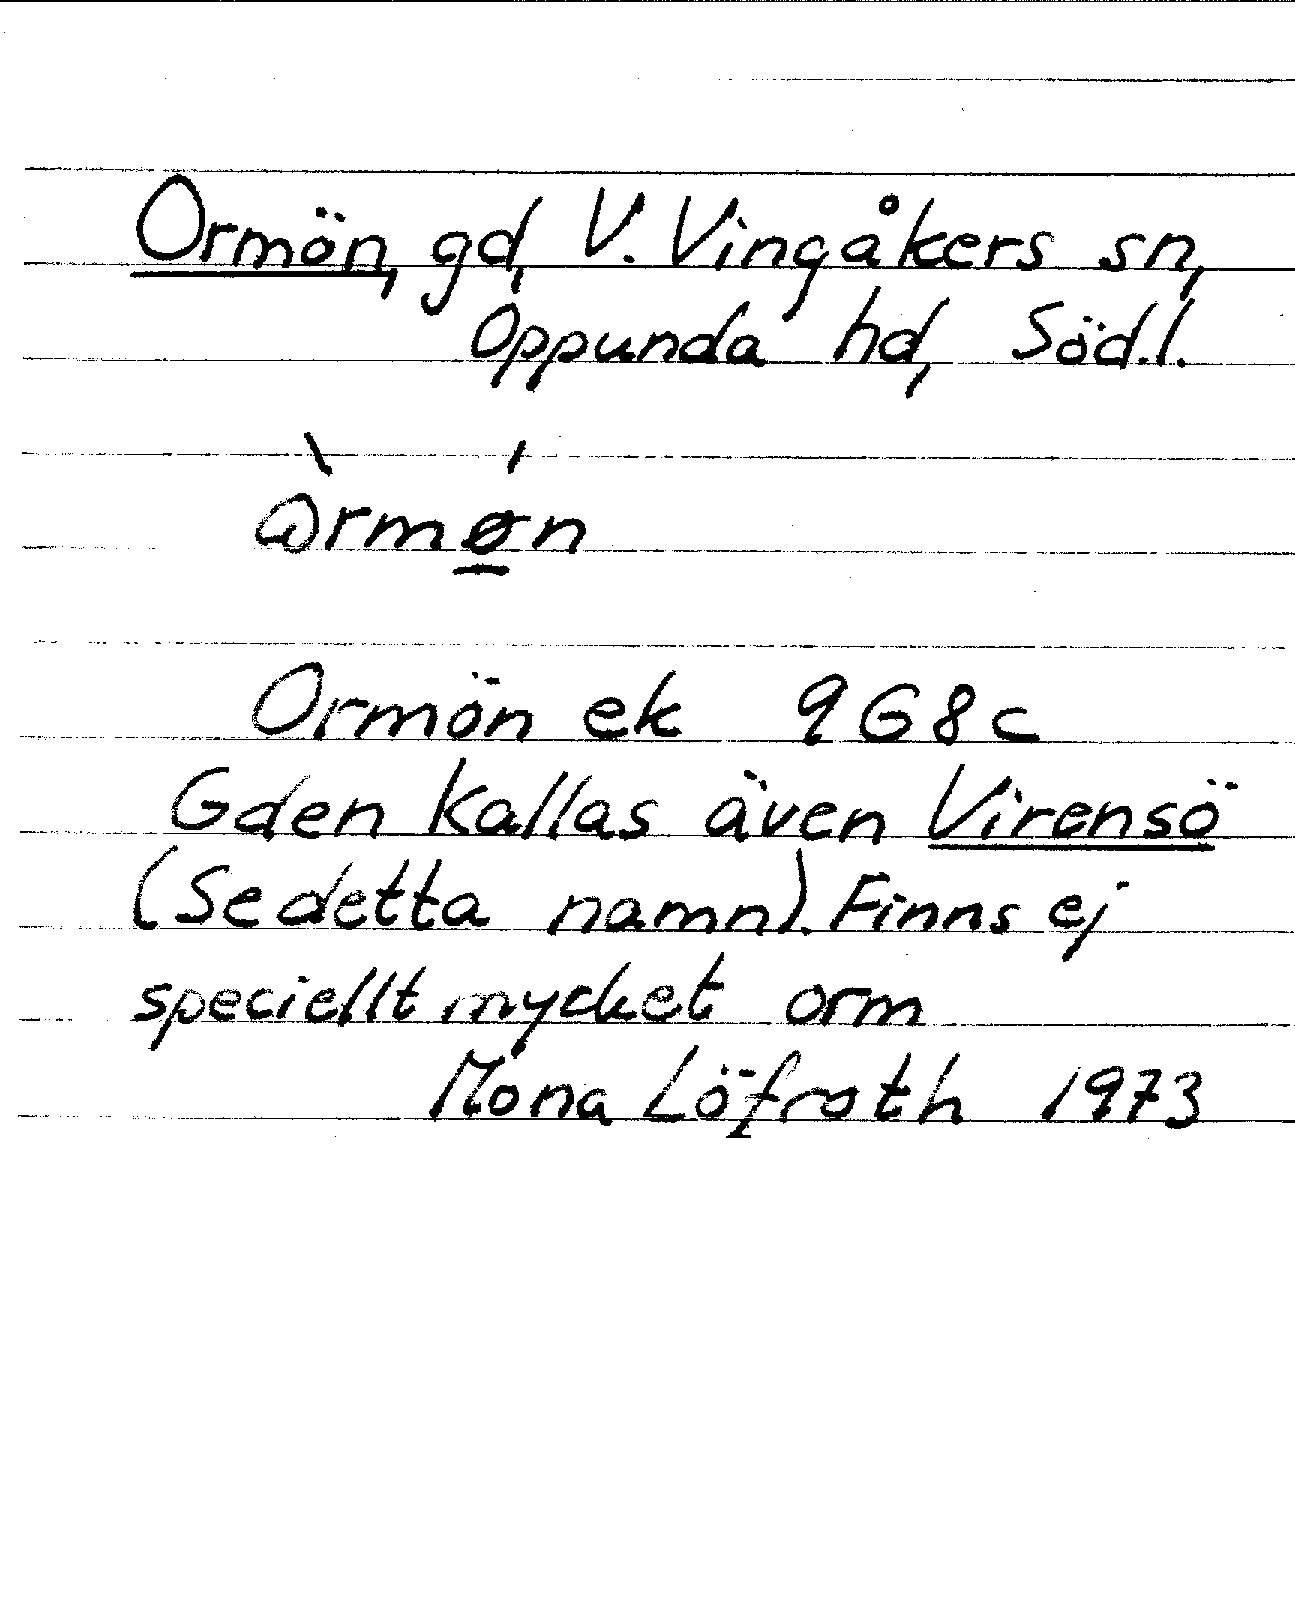 Ormön, gd, V. Vingåkers sn,
Oppunda hd, Söd.l.
ὼrmǿ̲n
Ormön ek 9G8c
Gden kallas även Virensö
(Se detta namn). Finns ej
speciellt mycket orm
Mona Löfroth 1973